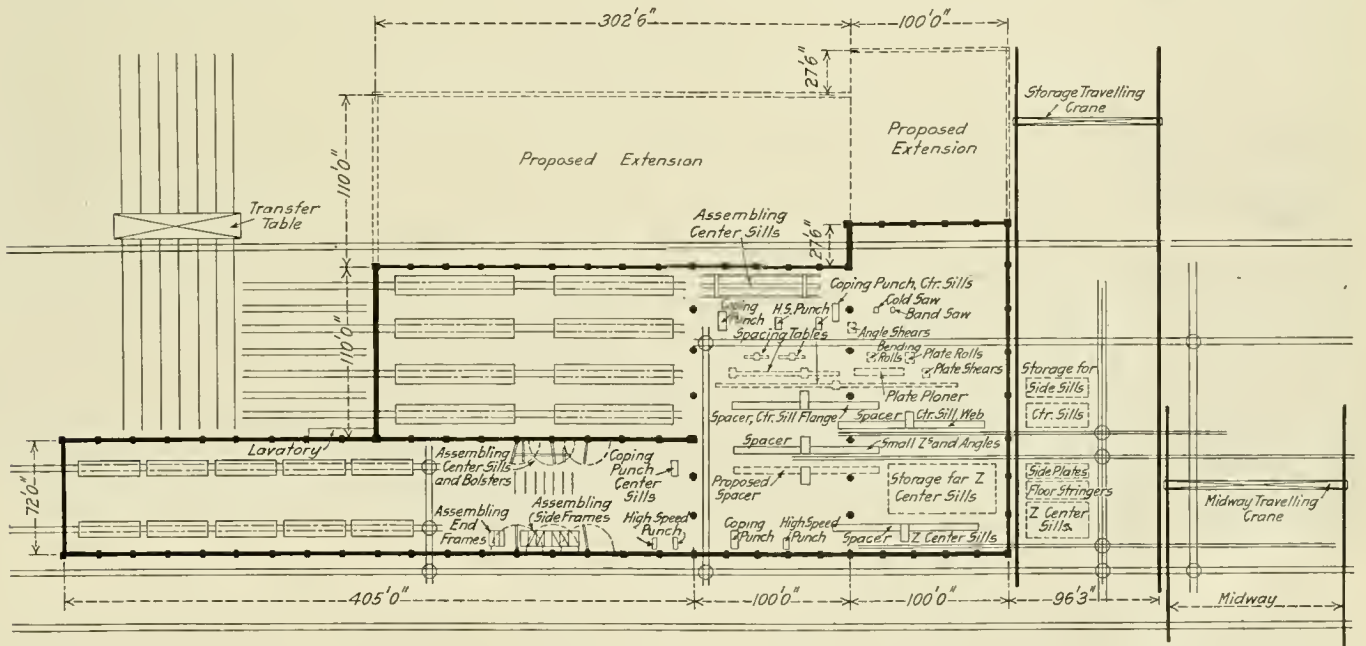 302'6"
100'0"
27'6"
Storage Travelling
Crane
Proposed
Extension
Proposed Extension
110'0"
Transfer
Table
Assembling
Center Sills
27'6"
110'0"
Coping Punch, Ctr. Sills
Coping
Punch
H.S. Punch
Cold Saw
Band Saw
Spacing Tables
Angle Shears
Bending
Rolls
Plate Rolls
Plate Shears
Storage for
Side Sills
Plate Planer
Ctr. Sills
Spacer, Ctr. Sill Flange
Spacer
Ctr. Sill, Web
Lavatory
Assembling
Center Sills
and Bolsters
Coping
Punch
Center
Sills
Spacer
Small Z's and Angles
72'0"
Proposed
Spacer
Storage for Z
Center Sills
Side Plates
Floor Stringers
Z Center
Sills
Midway Travelling
Crane
Assembling
End
Frames
Assembling
Side Frames
High Speed
Punch
Coping
Punch
High Speed
Punch
Spacer
Z Center Sills
405'0"
100'0"
100'0"
96'3"
Midway